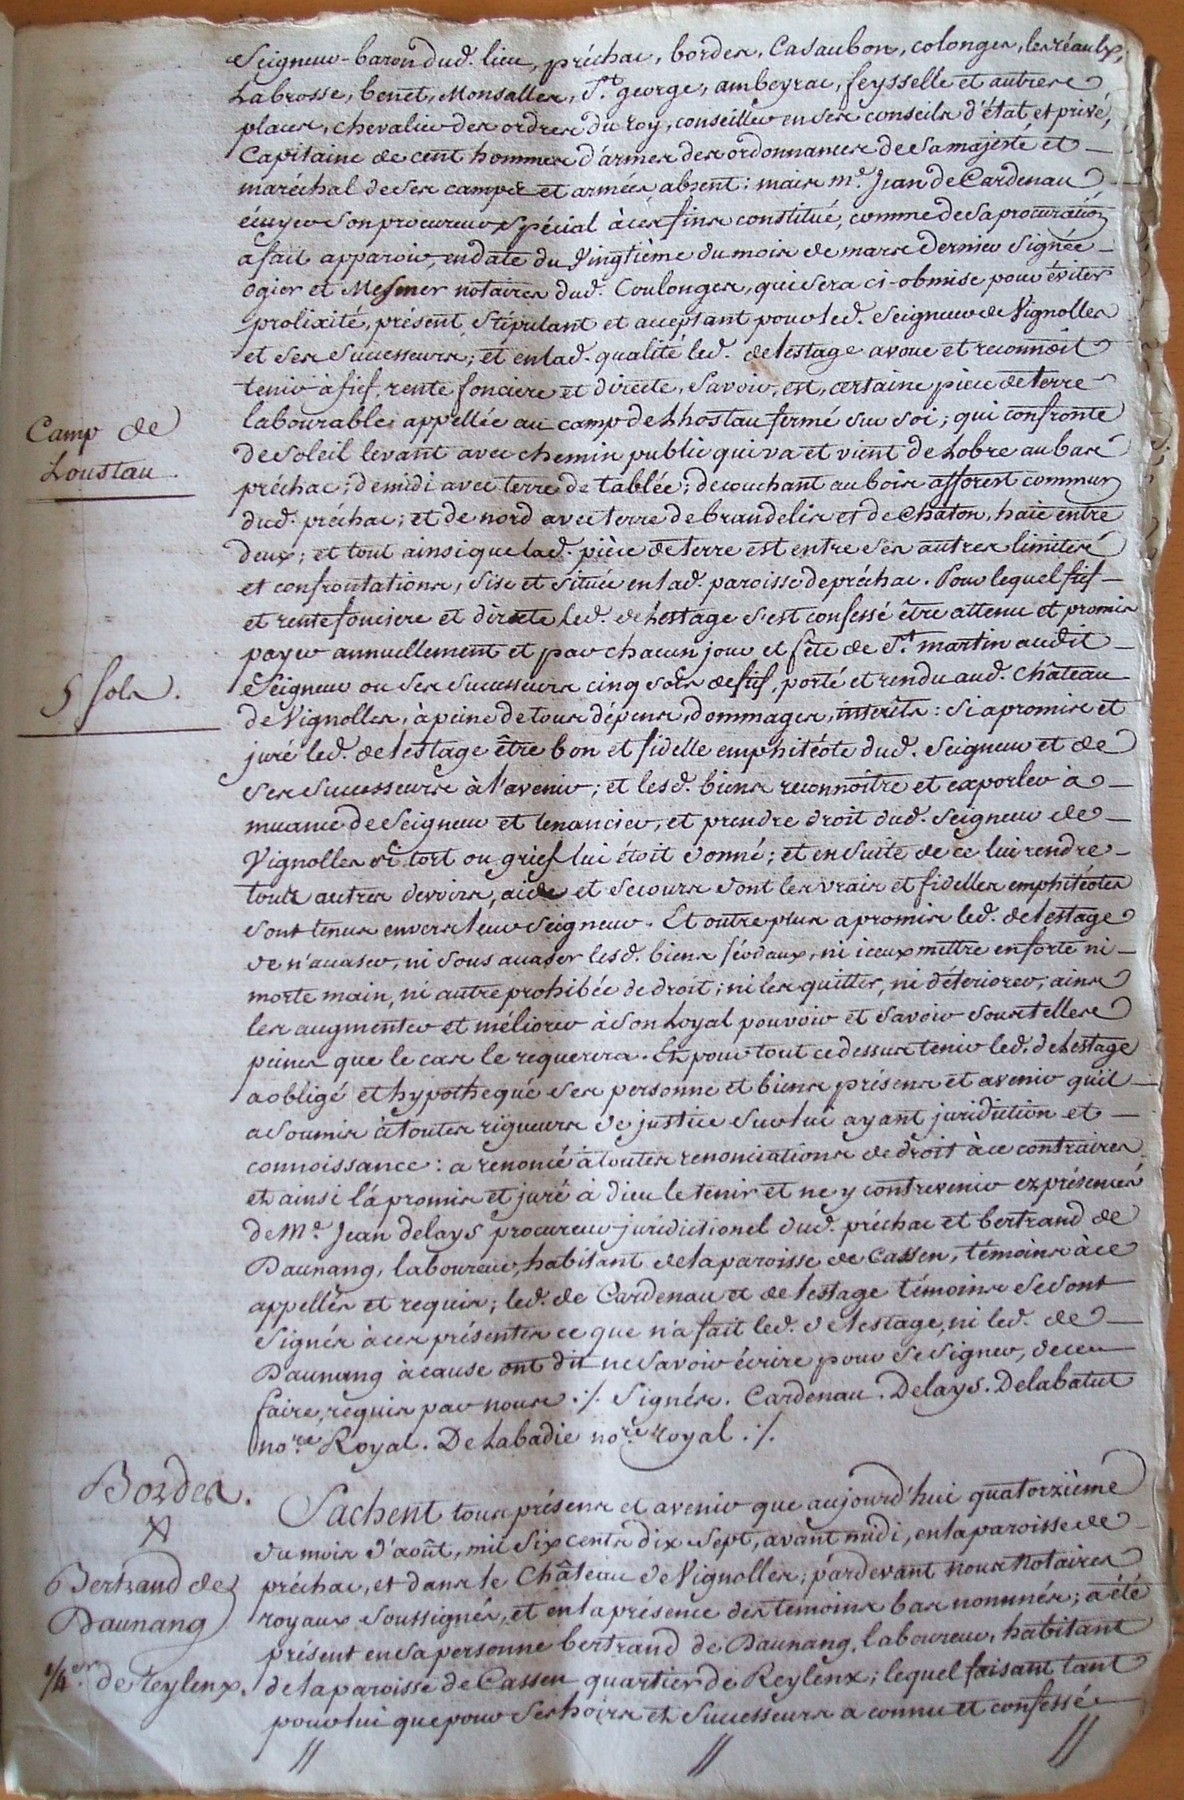 Seigneur-baron dud. lieu, préchac, bordes, Casaubon, colonges, les réaulx,
Labrosse, benet, Monsalles, St. george, ambeyrac, feysselle et autres
places, chevalier des ordres du roy, conseiller en ses conseils d'état et privé,
Capitaine de cent hommes d'armes des ordonnances de sa majesté et
maréchal de ses camps et armées absent: mais me. Jean de Cardenau
écuyer son procureur spécial à ces fins constitué, comme de sa procuration
a fait apparoir, en date du vingtième du mois de mars dernier signée
ogier et Mesmer notaires dud. Coulonges, qui sera ci-obmise pour éviter
prolixité, présent stipulant et acceptant pour led. Seigneur de Vignolles
et ses successeurs; et en lad. qualité led. de lestage avoue et reconnoit
tenir à fief, rente fonciere et directe, Savoir, est, certaine pièce de terre
labourable, appellée au camp de Lhostau fermé sur soi; qui confronte
de Soleil levant avec chemin public qui va et vient de Lobre au bas
préchac; de midi avec terre de tablée; de couchant au bois afforest commun
dud. préchac; et de nord avec terre de brandelis et de Chaton, haie entre
deux; et tout ainsi que lad. pièce de terre est entre ses autres limites
et confrontations, sise et située en lad. paroisse de préchac. Pour lequel fief
et rente fonciere et directe led. de Lestage s'est confessé être attenu et promis
payer annuellement et par chacun jour et fête de St. martin audit
Camp de
Loustau
Seigneur ou ses successeurs cinq sols de fief, porté et rendu aud. château
5 sols.
de Vignolles, à peine de tous dépens, dommages, interêts: Si a promis et
juré led. de lestage être bon et fidelle emphitéote dud. Seigneur et de
ses successeurs à l'avenir; et lesd. biens reconnoitre et exporler à
muance de Seigneur et tenancier, et prendre droit dud. Seigneur de
Vignolles si tort ou grief lui étoit donné; et en suite de ce lui rendre
touts autres devoirs, aide et secours dont les vrais et fidelles emphitéotes
sont tenus envers leur Seigneur. Et outre plus a promis led. de lestage
de n'avaser, ni sous avaser lesd. biens féodaux, ni iceux mettre en forte ni
morte main, ni autre prohibée de droit; ni les quitter, ni déteriorer; ains
les augmenter et méliorer à son Loyal pouvoir et savoir sous telles
peines que le cas le requerera. Et pour tout ce dessus tenir led. de Lestage
a obligé et hypothequé ses personne et biens présens et avenir quil
a soumis à toutes rigueurs de justice sur lui ayant juridiction et
connoissance: a renoncé à toutes renonciations de droit à ce contraires
et ainsi l'a promis et juré à dieu le tenir et ne y contrevenir ez présences
de Me. Jean delays procureur juridictionel dud. préchac et bertrand de
Daunang, laboureur, habitant de la paroisse de Cassen, témoins à ce
appellés et requis; led. de Cardenau et de lestage témoins se sont
signés à ces présentes ce que n'a fait led. de lestage, ni led. de
Daunang à cause ont dit ne savoir écrire pour se signer, de ceu
faire, requis par nous ./. Signés. Cardenau. Delays. Delabatut
nore. Royal. De Labadie nore. royal ./.
Bordes.
X
Bertrand de
Daunang
1/4er. de Reylenx.
Sachent tous présens et avenir que aujourd'hui quatorzième
du mois d'août, mil six cents dix sept, avant midi, en la paroisse de
préchac, et dans le Château de Vignolles; pardevant nous Notaires
royaux soussignés, et en la présence des témoins bas nommés; a été
présent en sa personne bertrand de Daunang, laboureur, habitant
de la paroisse de Cassen quartier de Reylenx; lequel faisant tant
pour lui que pour ses hoirs et successeurs a connu et confessé
// // //